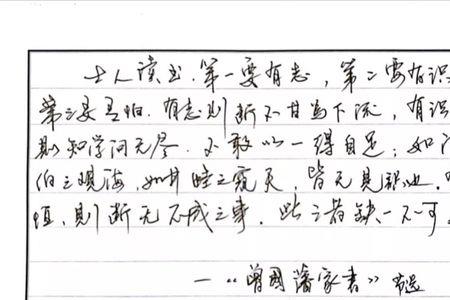 士人读书.第一要有志,第二要有识
第三要有恒.有志则断不甘为下流,有识
则知学问无尽.不敢以一得自足;如河
伯之观海,如井蛙之窥天,皆无见识也.
恒,则断无不成之事.此三者缺一不可.
—《曾国藩家书》节选